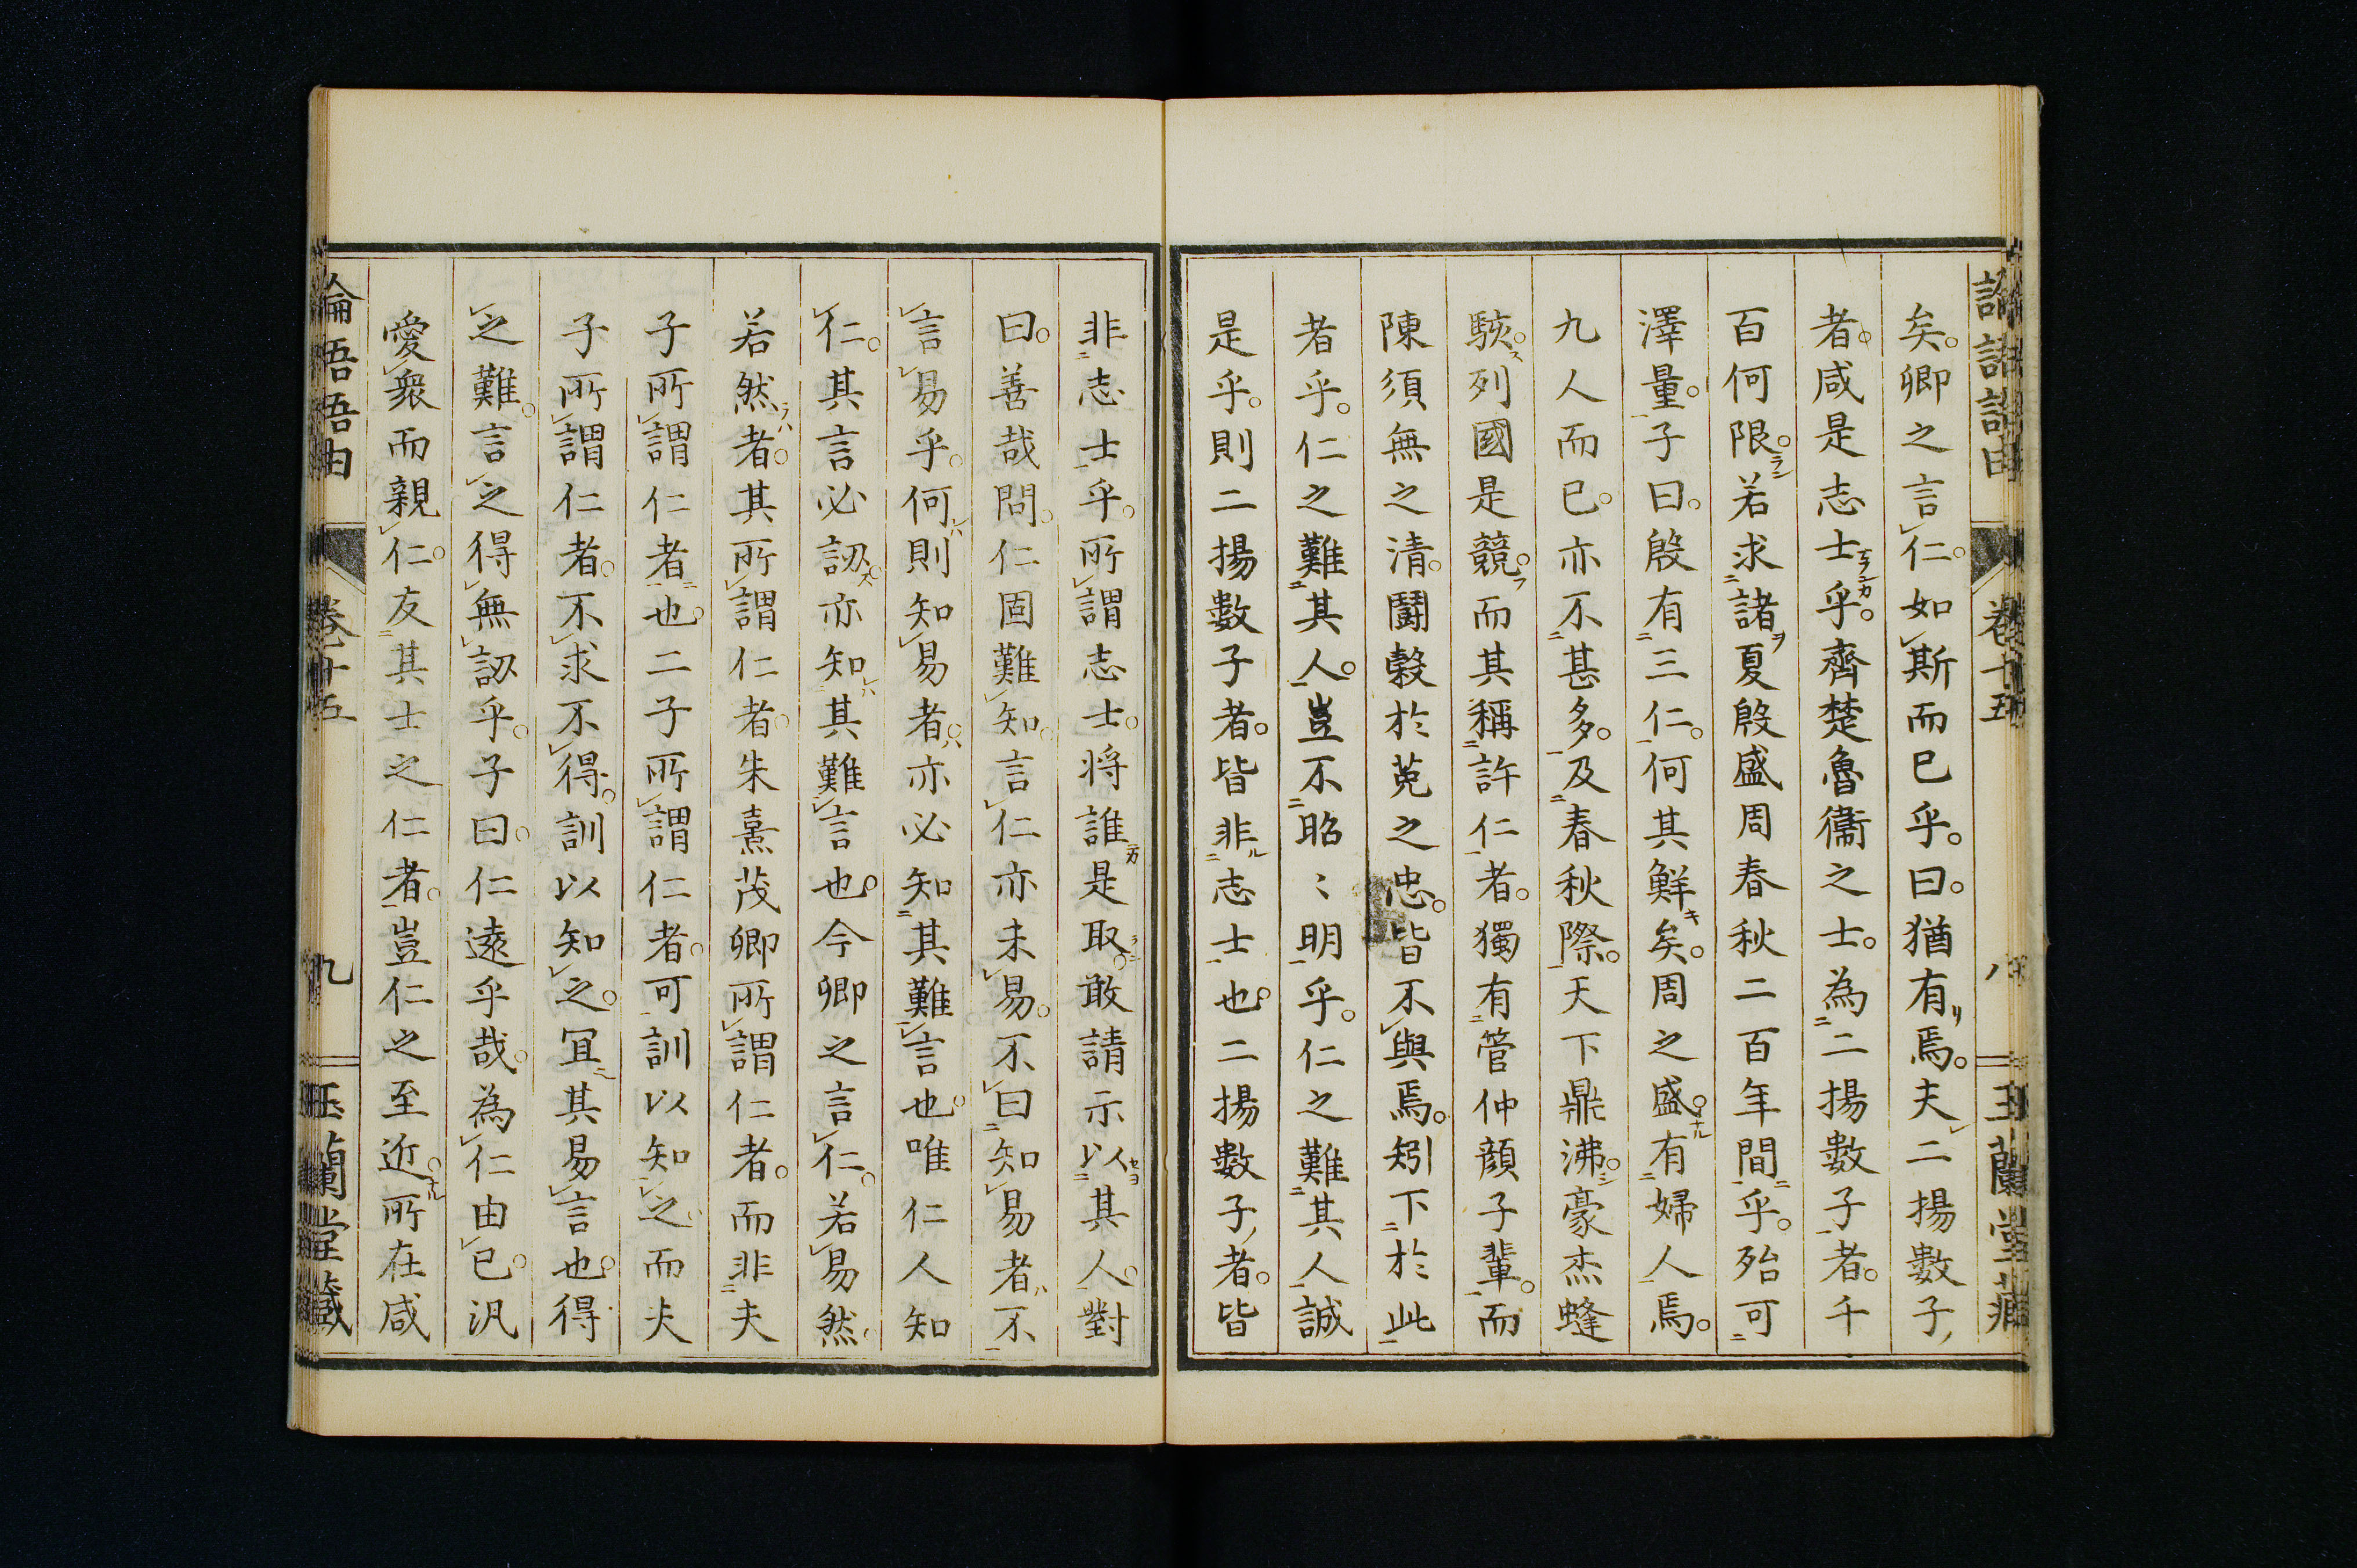 論語語由 卷十五 八 玉蘭堂藏
矣。卿之言仁。如斯而已乎。曰。猶有焉。夫二揚數子
者。咸是志士乎。齊楚魯衞之士。為二揚數子者。千
百何限。若求諸夏殷盛周春秋二百年間乎。殆可
澤量。子曰。殷有三仁。何其鮮矣。周之盛。有婦人焉。
九人而已。亦不甚多。及春秋際。天下鼎沸。豪杰蜂
駭。列國是競。而其稱許仁者。獨有管仲顏子輩。而
陳須無之清。鬪穀於菟之忠。皆不與焉。矧下於此
者乎。仁之難其人。豈不昭〻明乎。仁之難其人誠
是乎。則二揚數子者。皆非志士也。二揚數子者。皆
非志士乎。所謂志士。將誰是取。敢請示以其人。對
曰。善哉問。仁固難知。言仁亦未易。不曰知易者。不
言易乎。何則知易者。亦必知其難言也。唯仁人知
仁。其言必訒。亦知其難言也。今卿之言仁。若易然。
若然者。其所謂仁者。朱熹茂卿所謂仁者。而非夫
子所謂仁者也。二子所謂仁者。可訓以知之。而夫
子所謂仁者。不求不得。訓以知之。宜其易言也。得
之難。言之得無訒乎。子曰。仁遠乎哉。為仁由已。汎
愛衆而親仁。友其士之仁者。豈仁之至近。所在咸
論語語由 卷十五 九 玉蘭堂藏